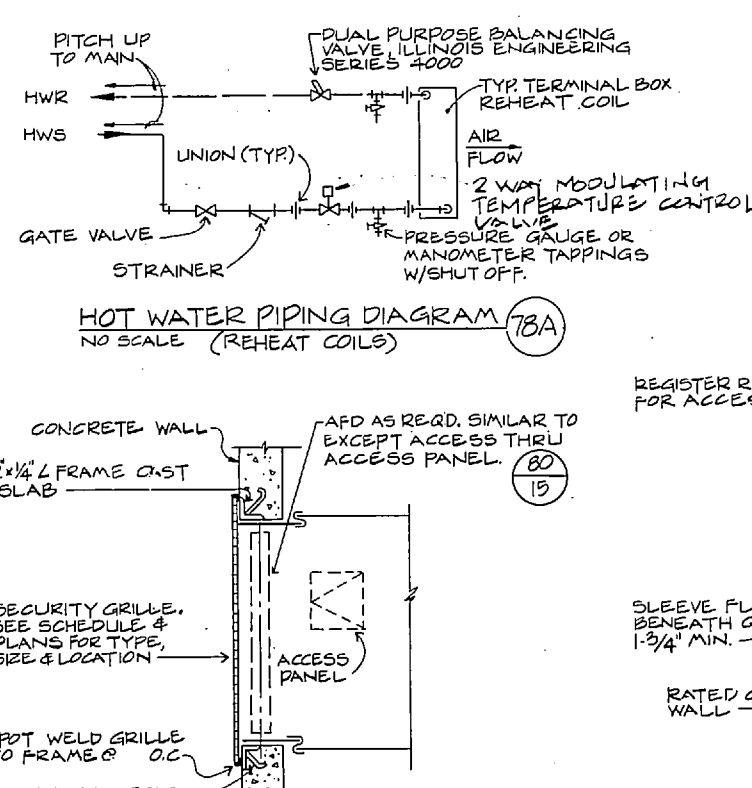 PITCH UP
TO MAIN
HWR
HWS
DUAL PURPOSE BALANCING
VALVE, ILLINOIS ENGINEERING
SERIES 4000
TYP. TERMINAL BOX
REHEAT COIL
AIR
FLOW
UNION (TYP.)
2 WAY MODULATING
TEMPERATURE CONTROL
VALVE
GATE VALVE
STRAINER
PRESSURE GAUGE OR
MANOMETER TAPPINGS
W/SHUT OFF.
HOT WATER PIPING DIAGRAM 78A
NO SCALE (REHEAT COILS)
REGISTER R
FOR ACCES
CONCRETE WALL
AFD AS REQD. SIMILAR TO
EXCEPT ACCESS THRU
ACCESS PANEL.
80
15
"x1/4" ∠ FRAME CAST
SLAB
SECURITY GRILLE.
SEE SCHEDULE &
PLANS FOR TYPE,
SIZE & LOCATION
ACCESS
PANEL
SLEEVE FL
BENEATH G
1-3/4" MIN.
RATED C
WALL
POT WELD GRILLE
O FRAME @ O.C.